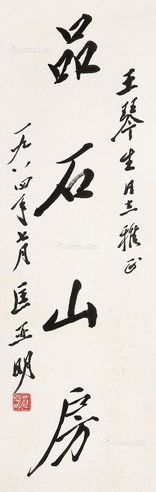 王琴生同志雅正
品石山房
一九八四年七月
匡亚明